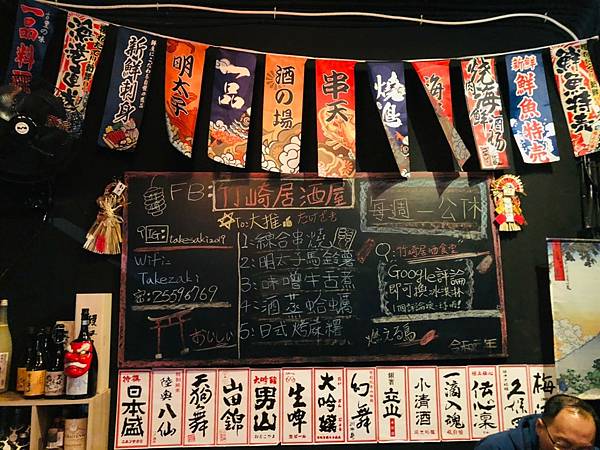 一品料理
漁港直送
新鮮刺身
明太子
一品
酒の場
串天
焼鳥
海
焼海鮮
酒場
新鮮
鮮魚特売
鮮魚特売
FB:竹崎居酒屋
每週一公休
to:大推
IG:
takesaki2019
WiFi:
Takezaki
25596769
おいしい
1:綜合串燒
2:明太子馬鈴薯
3:味噌牛舌煮
4:酒蒸蛤蠣
5:日式烤麻糬
Q:竹崎居酒食堂
Google評論
即可換冰淇淋
燃える馬
日本盛
陸奥八仙
天狗舞
山田錦
大吟醸
男山
生啤
大吟釀
幻舞
立山
小清酒
一滴入魂
伝心
久保田
梅